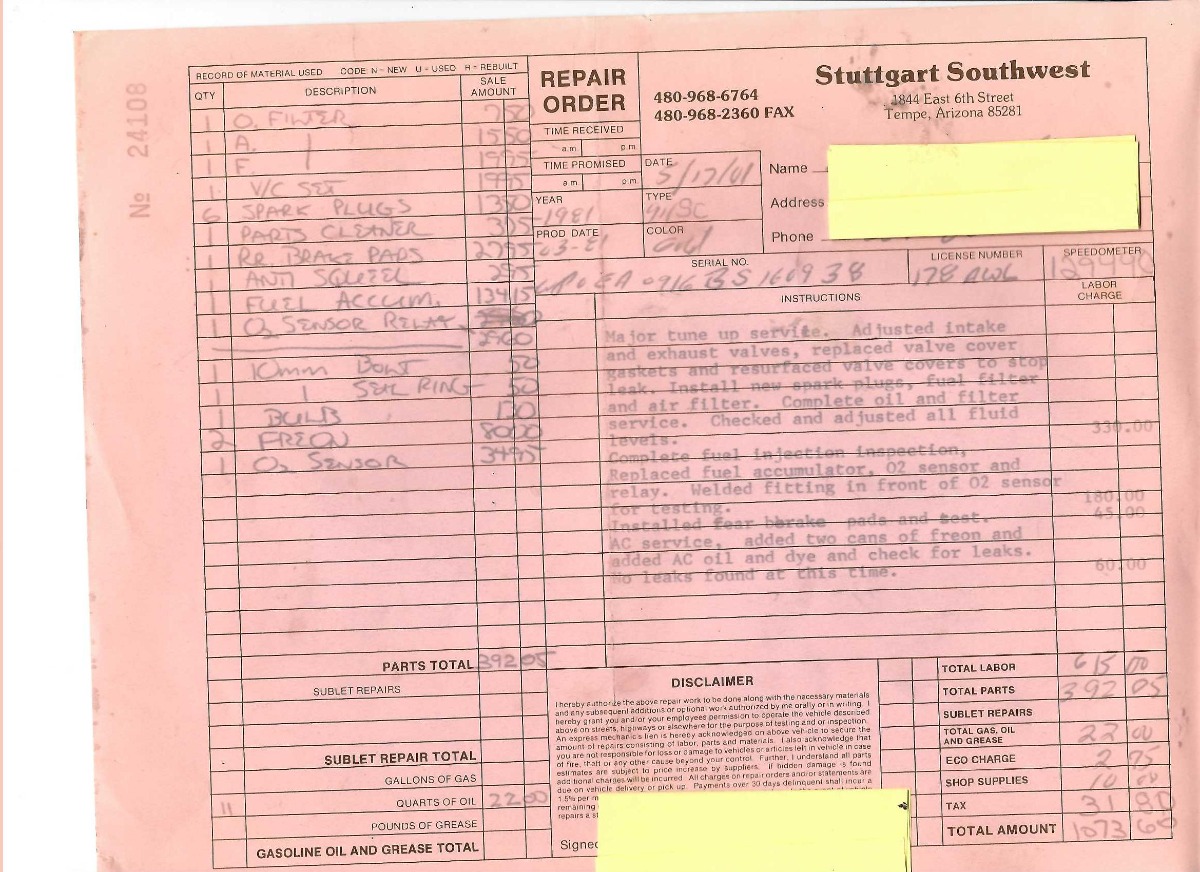 № 24108
RECORD OF MATERIAL USED CODE: N - NEW U - USED R - REBUILT
QTY DESCRIPTION SALE AMOUNT
1 O. FILTER 7 50
1 A. | 15 50
1 F. | 19 95
1 V/C SET 19 95
6 SPARK PLUGS 13 50
1 PARTS CLEANER
1 Rr. BRAKE PADS 27 95
1 ANTI SQUEEL 2 95
1 FUEL ACCUM. 134 15
1 O2 SENSOR RELAY
29 00
1 10mm BOLT 50
1 | SEAL RING 50
1 BULB 1 30
2 FREON 80 00
1 O2 SENSOR 34 95
PARTS TOTAL 392 05
SUBLET REPAIRS
SUBLET REPAIR TOTAL
GALLONS OF GAS
11 QUARTS OF OIL 22 00
POUNDS OF GREASE
GASOLINE OIL AND GREASE TOTAL
REPAIR ORDER
TIME RECEIVED
a.m. p.m.
TIME PROMISED
a.m. p.m.
480-968-6764
480-968-2360 FAX
Stuttgart Southwest
1844 East 6th Street
Tempe, Arizona 85281
DATE 5/17/01
YEAR 1981
TYPE 911SC
PROD DATE 03-81
COLOR
Name
Address
Phone
SERIAL NO.
LICENSE NUMBER 178 AWL
SPEEDOMETER 129990
INSTRUCTIONS
LABOR CHARGE
Major tune up service. Adjusted intake
and exhaust valves, replaced valve cover
gaskets and resurfaced valve covers to stop
leak. Install new spark plugs, fuel filter
and air filter. Complete oil and filter
service. Checked and adjusted all fluid
levels. 330.00
Complete fuel injection inspection,
Replaced fuel accumulator, O2 sensor and
relay. Welded fitting in front of O2 sensor
for testing. 180.00
Installed fear bbrake pads and test. 45.00
AC service, added two cans of freon and
added AC oil and dye and check for leaks.
No leaks found at this time. 60.00
DISCLAIMER
I hereby authorize the above repair work to be done along with the necessary materials
and any subsequent additions or optional work authorized by me orally or in writing. I
hereby grant you and/or your employees permission to operate the vehicle described
above on streets, highways or elsewhere for the purpose of testing and/or inspection.
An express mechanic's lien is hereby acknowledged on above vehicle to secure the
amount of repairs consisting of labor, parts and materials. I also acknowledge that
you are not responsible for loss or damage to vehicles or articles left in vehicle in case
of fire, theft or any other cause beyond your control. Further, I understand all parts
estimates are subject to price increase by suppliers. If hidden damage is found
additional charges will be incurred. All charges on repair orders and/or statements are
due on vehicle delivery or pick up. Payments over 30 days delinquent shall incur a
1.5% per m
remaining
repairs a st
Signed
TOTAL LABOR 615 00
TOTAL PARTS 392 05
SUBLET REPAIRS
TOTAL GAS, OIL AND GREASE 22 00
ECO CHARGE 2 75
SHOP SUPPLIES 10 00
TAX 31 80
TOTAL AMOUNT 1073 60